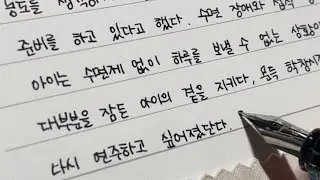 준비를 하고 있다고 했다. 수면 장애와 섭식
아이는 수면제 없이 하루를 보낼 수 없는 상황이
대부분을 잠든 아이의 곁을 지키다, 문득 학창시
다시 연주하고 싶어졌단다.